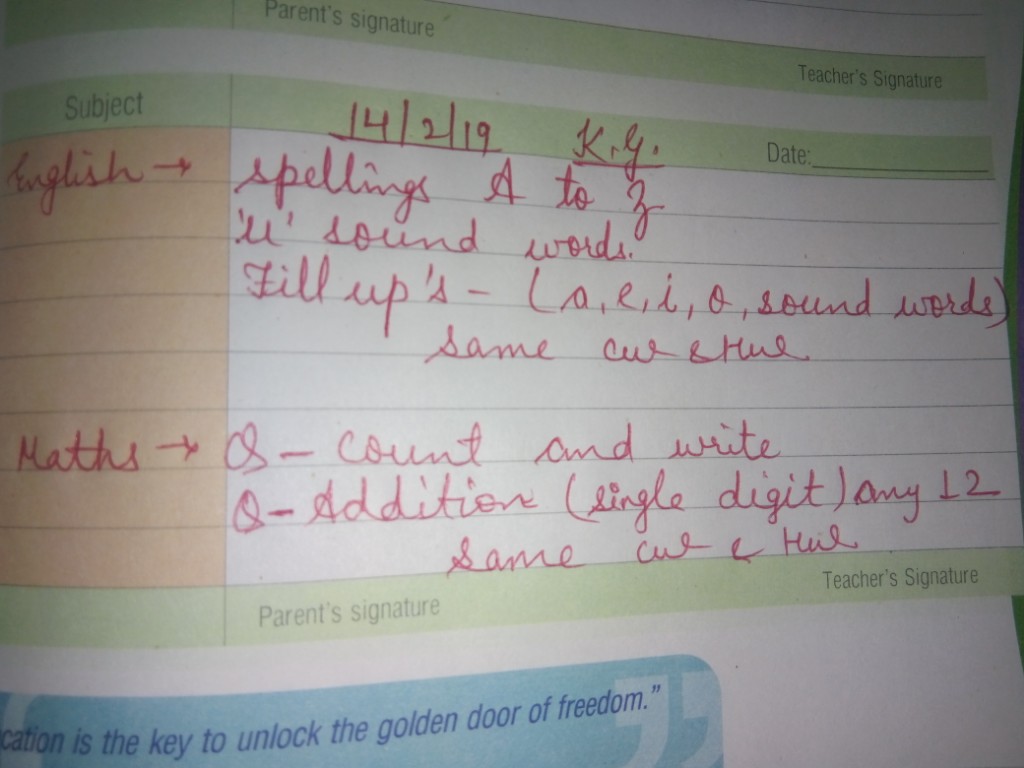 Parent's signature
Teacher's Signature
Subject
14/2/19 K.G. Date:
English → spellings A to Z
'u' sound words.
Fill up's - (a, e, i, o, sound words)
same
Maths → Q - Count and write
Q - Addition (single digit) any 12
same
Teacher's Signature
Parent's signature
cation is the key to unlock the golden door of freedom."